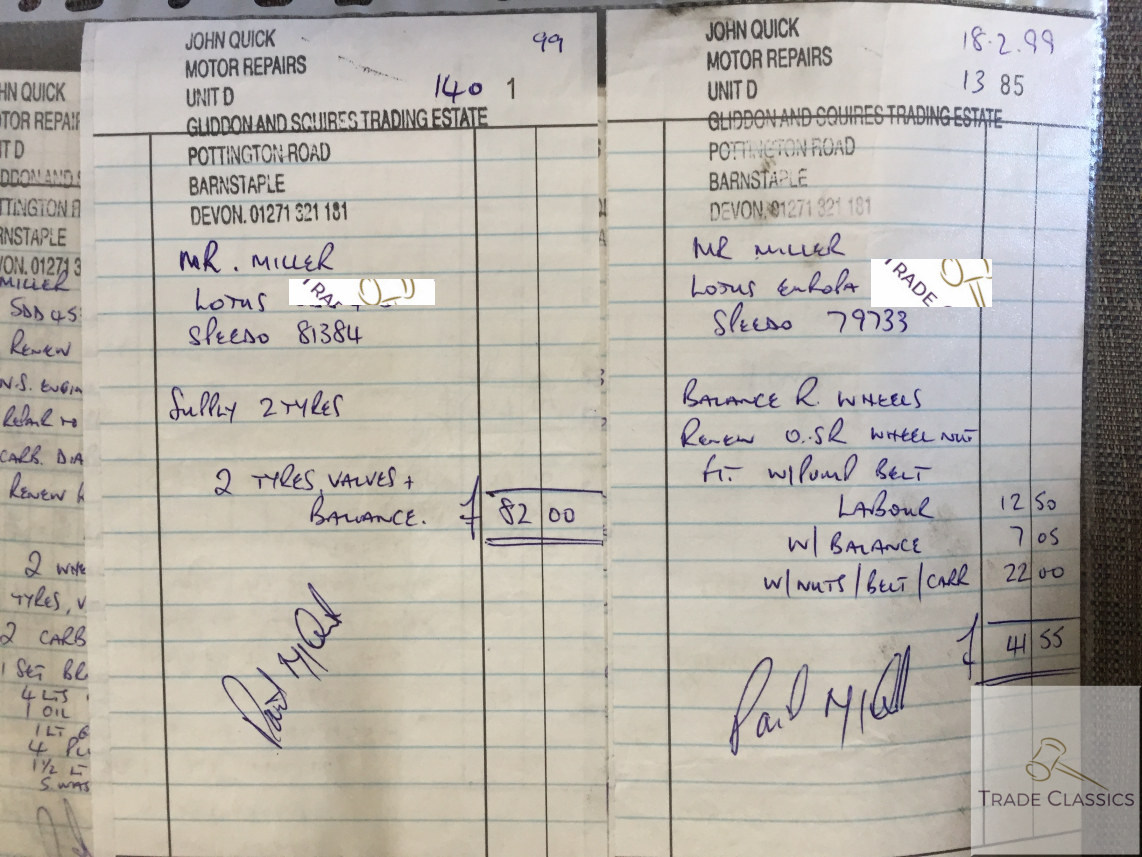 HN QUICK
TOR REPAIR
IT D
DDON AND S
TTINGTON R
RNSTAPLE
VON. 01271 3
MILLER
SDD 45
RENEW
N.S. ENGIN
REPAIR TO
CARB. DIA
RENEW
2 WHE
TYRES, V
2 CARB
1 SET BR
4 LTS
1 OIL
1 LT
4 PL
1½ LT
5 WAS
JOHN QUICK
99
MOTOR REPAIRS
UNIT D
140 1
GLIDDON AND SQUIRES TRADING ESTATE
POTTINGTON ROAD
BARNSTAPLE
DEVON. 01271 321 181
MR. MILLER
LOTUS
TRA
SPEEDO 81384
SUPPLY 2 TYRES
2 TYRES, VALVES +
BALANCE. £ 82 00
JOHN QUICK
18.2.99
MOTOR REPAIRS
UNIT D
13 85
GLIDDON AND SQUIRES TRADING ESTATE
POTTINGTON ROAD
BARNSTAPLE
DEVON. 01271 321 181
MR MILLER
LOTUS EUROPA
TRADE
SPEEDO 79733
BALANCE R. WHEELS
RENEW O.SR WHEEL NUT
FT. W/PUMP BELT
LABOUR 12 50
W/BALANCE 7 05
W/NUTS/BELT/CARR 22 00
£ 41 55
TRADE CLASSICS